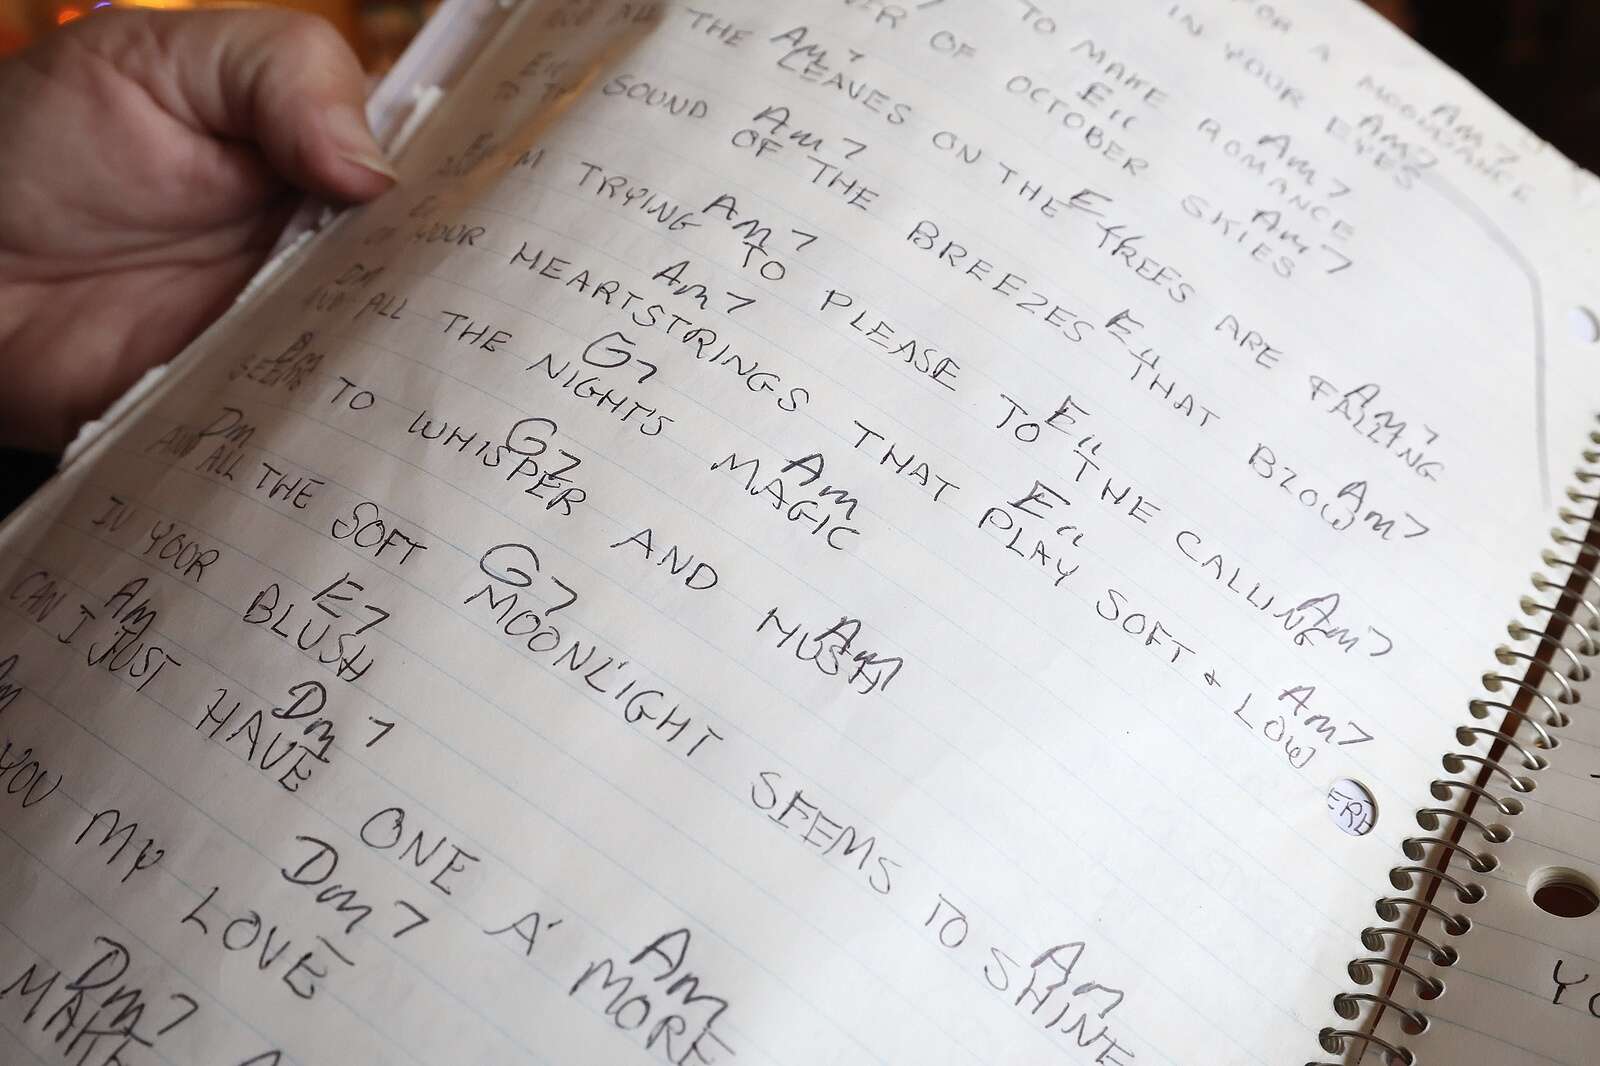 FOR A MOONDANCE
Am7
IN YOUR EYES
Am7
TO MAKE ROMANCE
E11 Am7
OF OCTOBER SKIES
Am7 E11 Am7
ALL THE LEAVES ON THE TREES ARE FALLING
Am7 E11 Am7
SOUND OF THE BREEZES THAT BLOW
Am7 E11 Am7
TRYING TO PLEASE TO THE CALLING
Am7 E11 Am7
OF YOUR HEARTSTRINGS THAT PLAY SOFT & LOW
Dm G7 Am
ALL THE NIGHT'S MAGIC
Dm G7 Am
SEEMS TO WHISPER AND HUSH
Dm G7 Am
AND ALL THE SOFT MOONLIGHT SEEMS TO SHINE
E7
IN YOUR BLUSH
Am Dm7 Am
CAN I JUST HAVE ONE A' MORE
Am Dm7
YOU MY LOVE
Dm7
MAKE